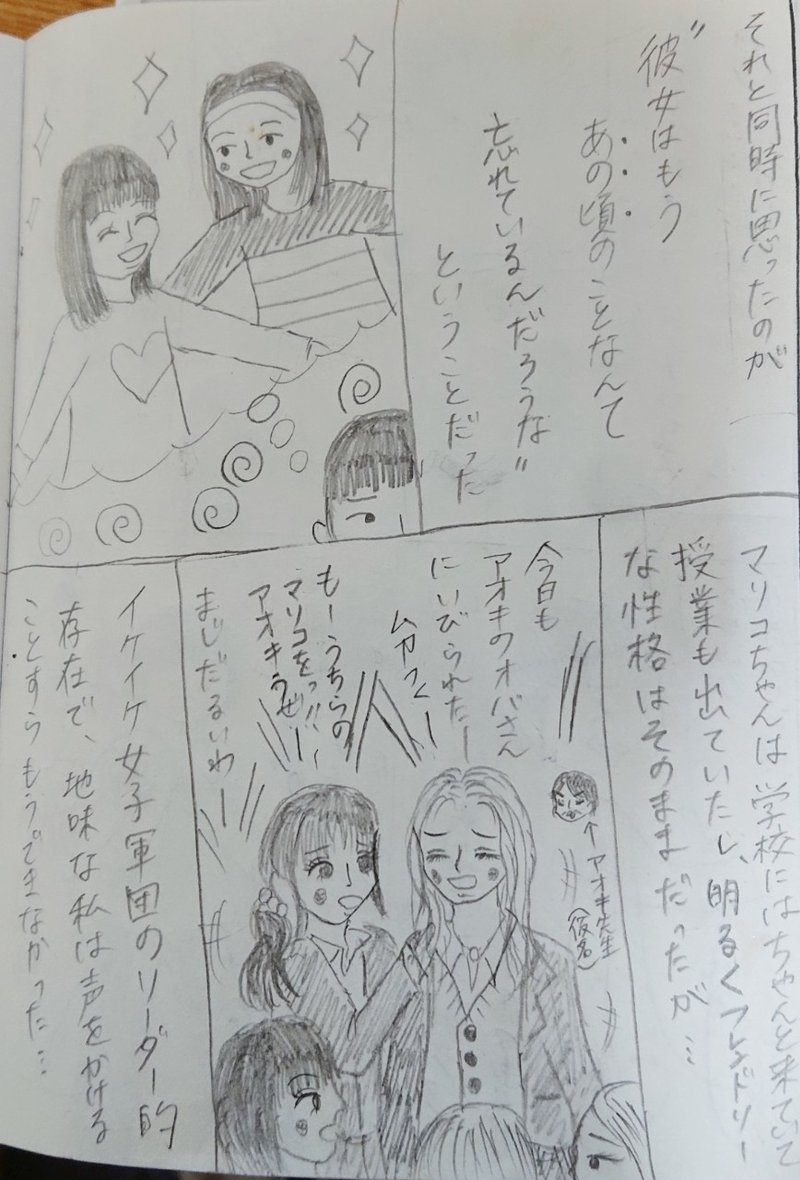 それと同時に思ったのが
”彼女はもう
あの頃のことなんて
忘れているんだろうな”
ということだった
マリコちゃんは学校にはちゃんと来ていて
授業も出ていたし、明るくフレンドリー
な性格はそのままだったが…
今日も
アオキのオバさん
にいびられたー
ムカつくー
もーうちらの
マリコをっ!!
アオキうぜー
まじだるいわー
←アオキ先生
(仮名)
イケイケ女子軍団のリーダー的
存在で、地味な私は声をかける
ことすらもうできなかった…